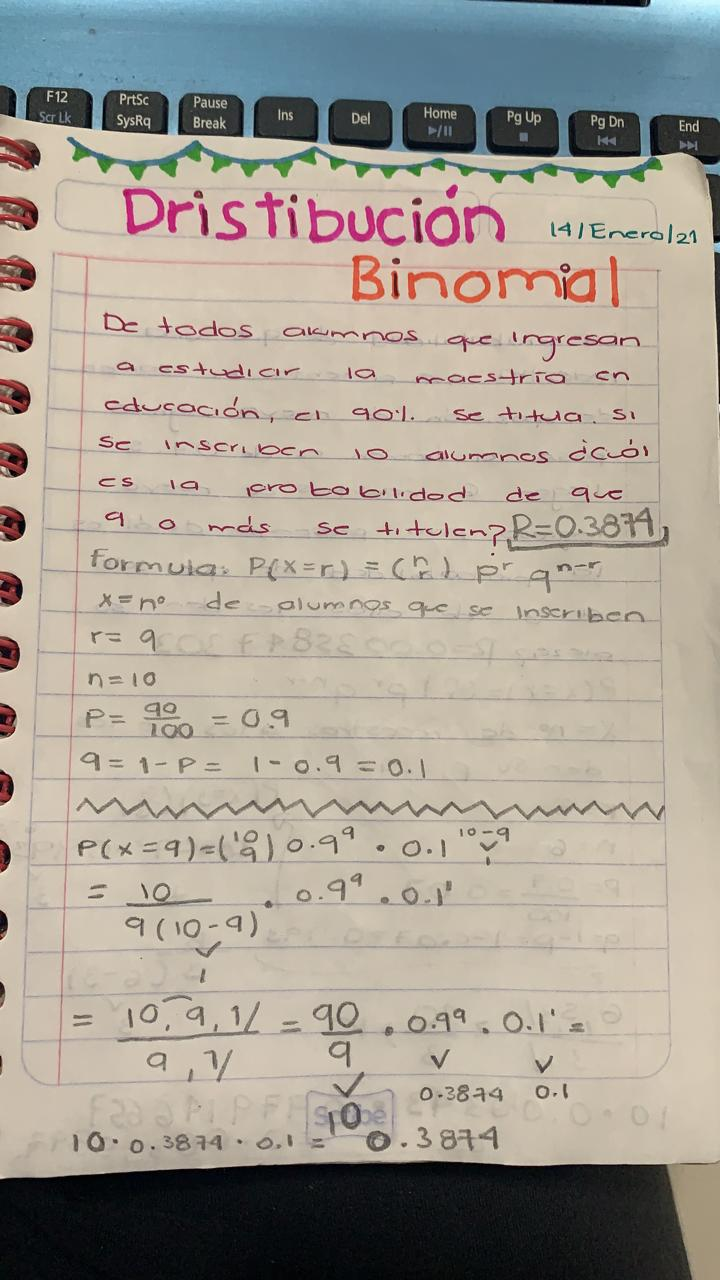 F12
Scr Lk
PrtSc
SysRq
Pause
Break
Ins
Del
Home
Pg Up
Pg Dn
End
Dristibución
14/Enero/21
Binomial
De todos alumnos que ingresan
a estudiar la maestría en
educación, el 90% se titula. si
se inscriben 10 alumnos ¿cuál
es la probabilidad de que
9 o más se titulen? R=0.3874
formula: P(x=r) = (n r) p^r q^n-r
x=nº de alumnos que se inscriben
r= 9
n=10
P= 90/100 = 0.9
q= 1-P= 1-0.9=0.1
P(x=9)=(10 9) 0.9⁹ • 0.1^10-9
1
= 10/9(10-9) • 0.9⁹ • 0.1¹
1
= 10, 9, 1/9, 1 = 90/9 • 0.9⁹ • 0.1¹ =
0.3874 0.1
10
10 • 0.3874 • 0.1 = 0.3874